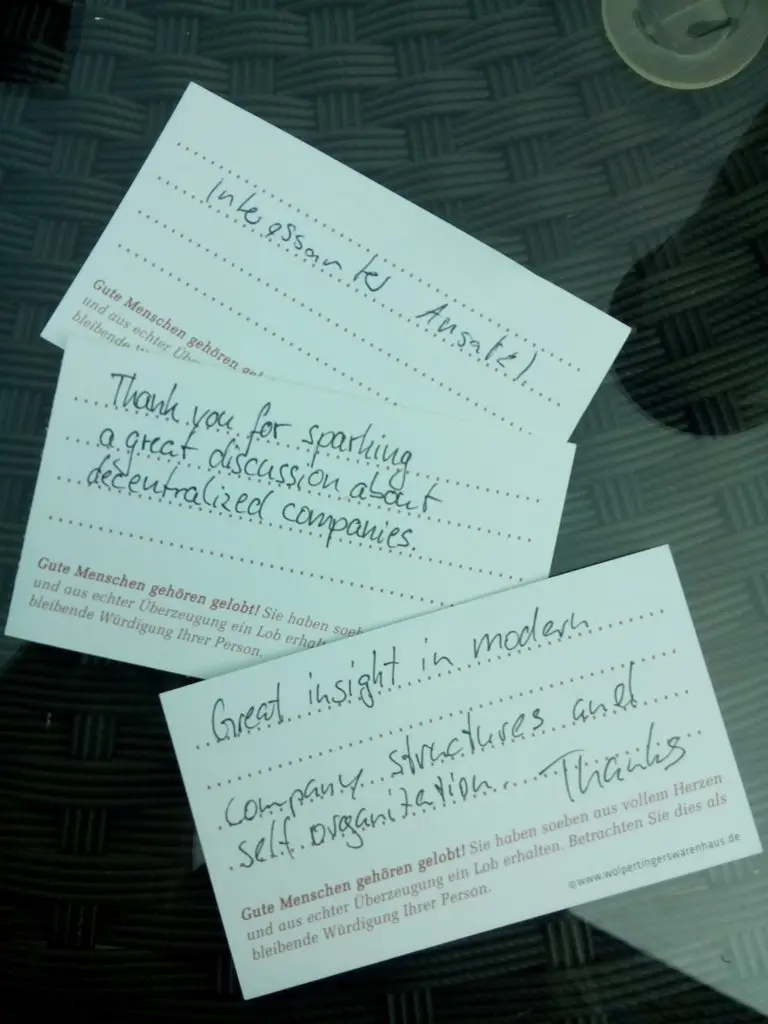 Interessanter Ansatz!
Gute Menschen gehören
und aus echter Über
bleibende
Thank you for sparking
a great discussion about
decentralized companies.
Gute Menschen gehören gelobt! Sie haben soeb
und aus echter Überzeugung ein Lob erhal
bleibende Würdigung Ihrer Person.
Great insight in modern
company structures and
self organization. Thanks
Gute Menschen gehören gelobt! Sie haben soeben aus vollem Herzen
und aus echter Überzeugung ein Lob erhalten. Betrachten Sie dies als
bleibende Würdigung Ihrer Person.
©www.wolpertingerswarenhaus.de